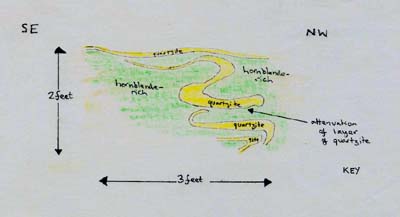 SE
NW
quartzite
hornblende-
rich
hornblende-
rich
2 feet
quartzite
quartzite
attenuation
of layer
of quartzite
KEY
3 feet